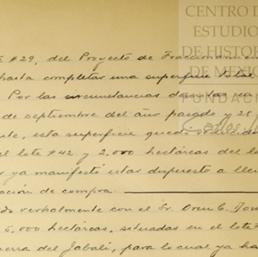 CENTRO D
ESTUDIO
DE HISTOR
DE MEXIC
FUNDAC
#29, del Proyecto de Fraccionamien
hasta completar una superficie
Por las circunstancias
de septiembre del año pasado y 25
esta superficie
el lote #42 y 2,000 hectáreas del
ya manifestó estar dispuesto a lle
ación de compra
verbalmente con el Sr. Oren C.
6,000 hectáreas, situadas en el lote
del Jabalí, para lo cual ya ha